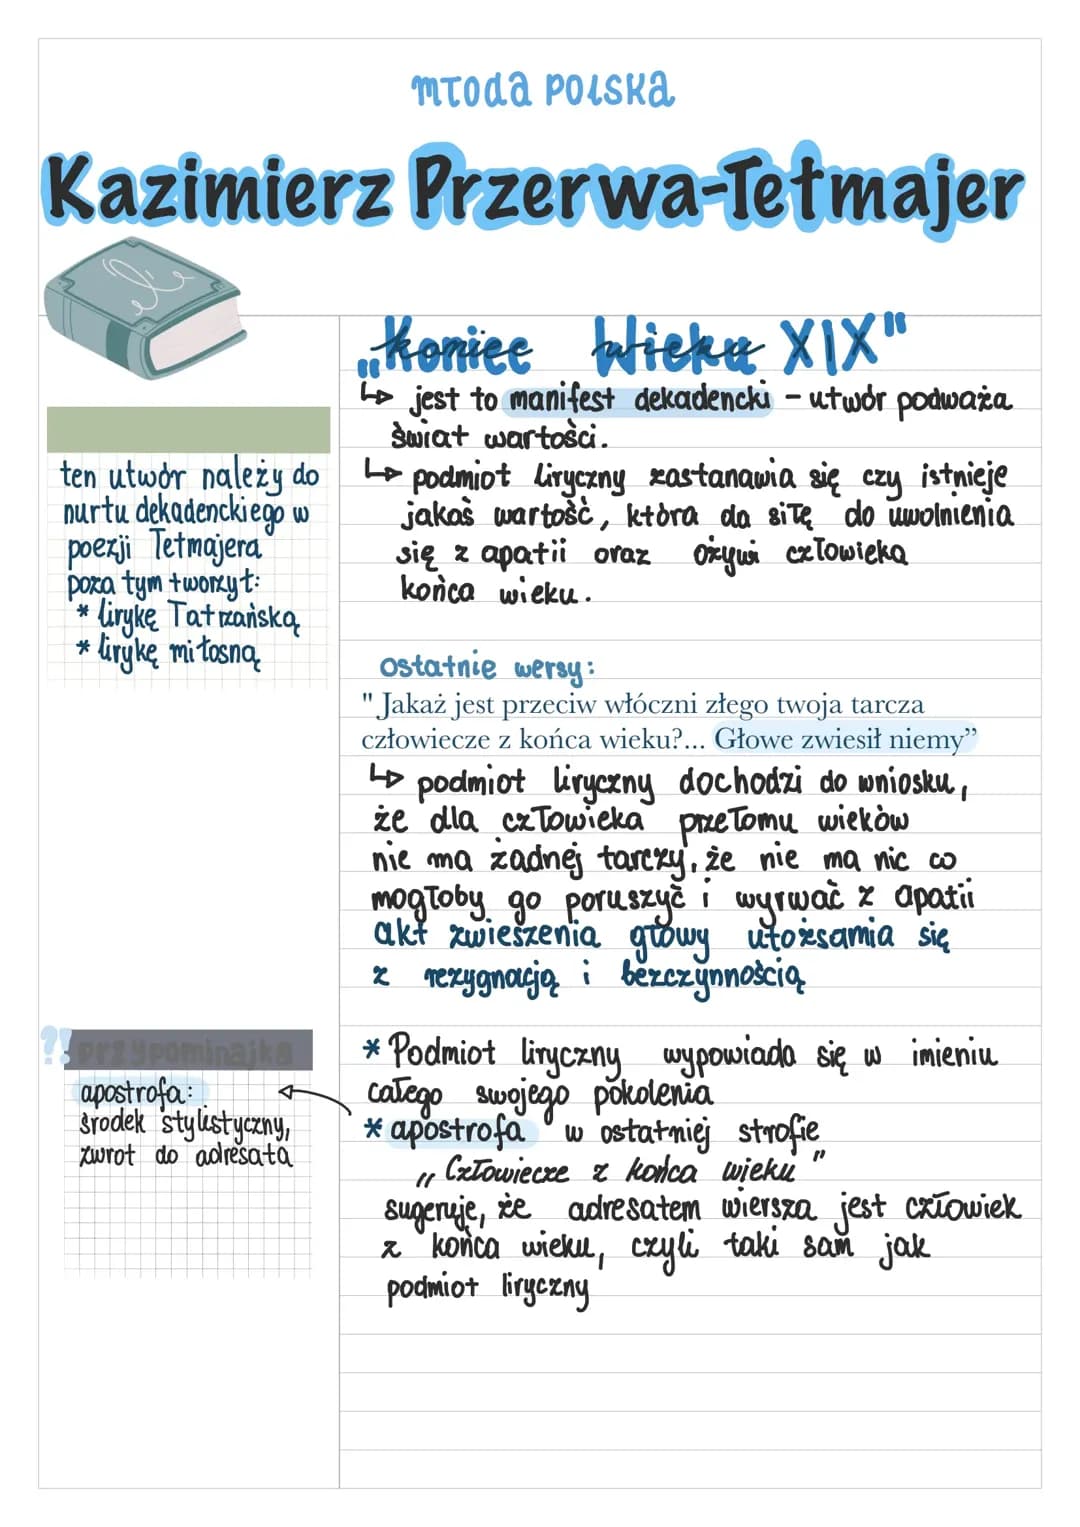 Młoda Polska
Kazimierz Przerwa-Tetmajer
„Koniec Wieku XIX"
↳ jest to manifest dekadencki - utwór podważa
świat wartości.
↳ podmiot liryczny zastanawia się czy istnieje
jakaś wartość, która da siłę do uwolnienia
się z apatii oraz ożywi człowieka
końca wieku.
ten utwór należy do
nurtu dekadenckiego w
poezji Tetmajera
poza tym tworzył:
* lirykę Tatrzańską
* lirykę miłosną
ostatnie wersy:
" Jakaż jest przeciw włóczni złego twoja tarcza
człowiecze z końca wieku?... Głowe zwiesił niemy”
↳ podmiot liryczny dochodzi do wniosku,
że dla człowieka przełomu wieków
nie ma żadnej tarczy, że nie ma nic co
mogłoby go poruszyć i wyrwać z apatii
akt zwieszenia głowy utożsamia się
z rezygnacją i bezczynnością
?! przypominajka
apostrofa:
środek stylistyczny,
zwrot do adresata
* Podmiot liryczny wypowiada się w imieniu
całego swojego pokolenia
* apostrofa w ostatniej strofie
„Człowiecze z końca wieku"
sugeruje, że adresatem wiersza jest człowiek
z końca wieku, czyli taki sam jak
podmiot liryczny